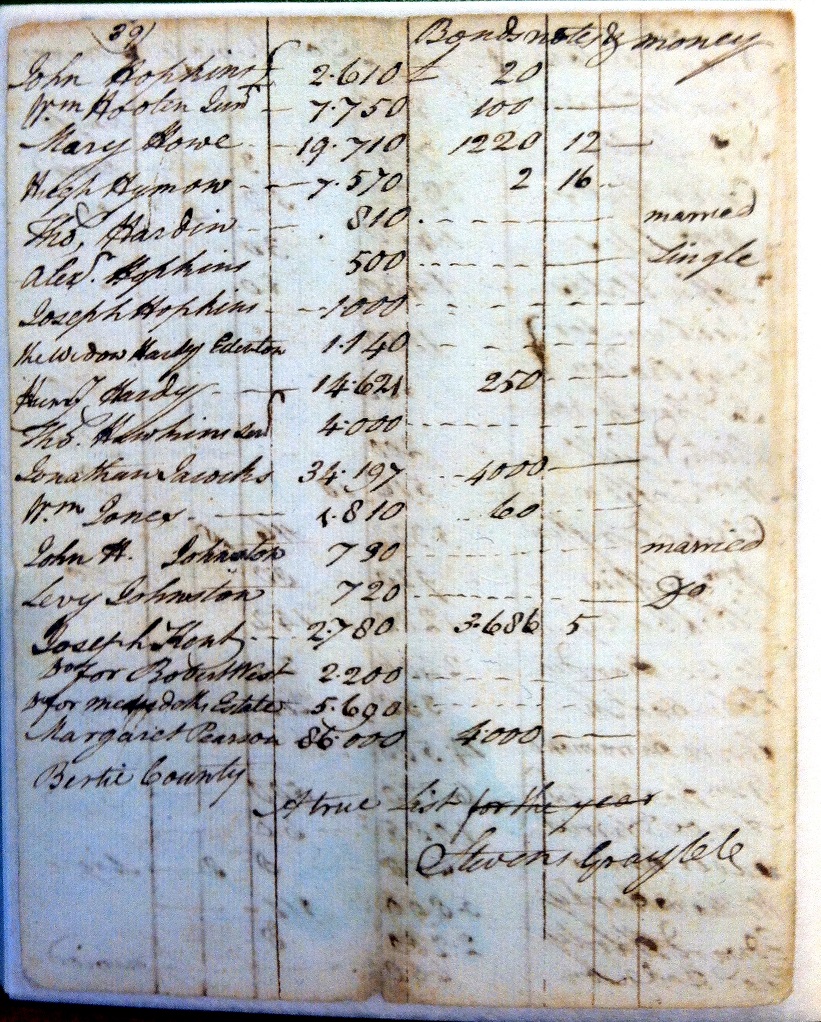 39) Bonds notes & money
John Hopkins £ 2.610 £ 20
Wm Hooten Junr 7.750 100
Mary Howe 19.710 1220 12
Hugh Hymon 7.570 2 16
Thos Hardin 810 married
Alexr. Hopkins 500 Single
Joseph Hopkins 1000
the Widow Hardy Edenton 1.140
Humy Hardy 14.621 250
Thos. Hawkins Senr 4.000
Jonathan Jacocks 34.197 4000
Wm Jones 1.810 60
John H. Johnston 790 married
Levy Johnston 720 Do
Joseph Kent 2.780 3.686 5
Do for Robert West 2.200
Do for Estate 5.690
Margaret Pearson 86.000 4.000
Bertie County
A true List for the year
Stevens Gray